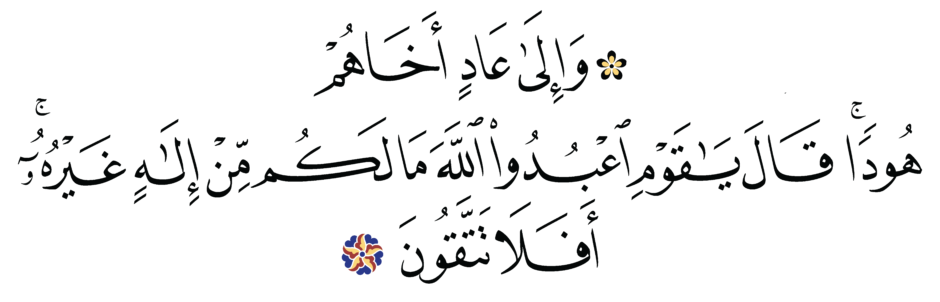 وَإِلَىٰ عَادٍ أَخَاهُمْ
هُودًا ۚ قَالَ يَـٰقَوْمِ ٱعْبُدُوا۟ ٱللَّهَ مَا لَكُم مِّنْ إِلَـٰهٍ غَيْرُهُۥٓ ۚ
أَفَلَا تَتَّقُونَ